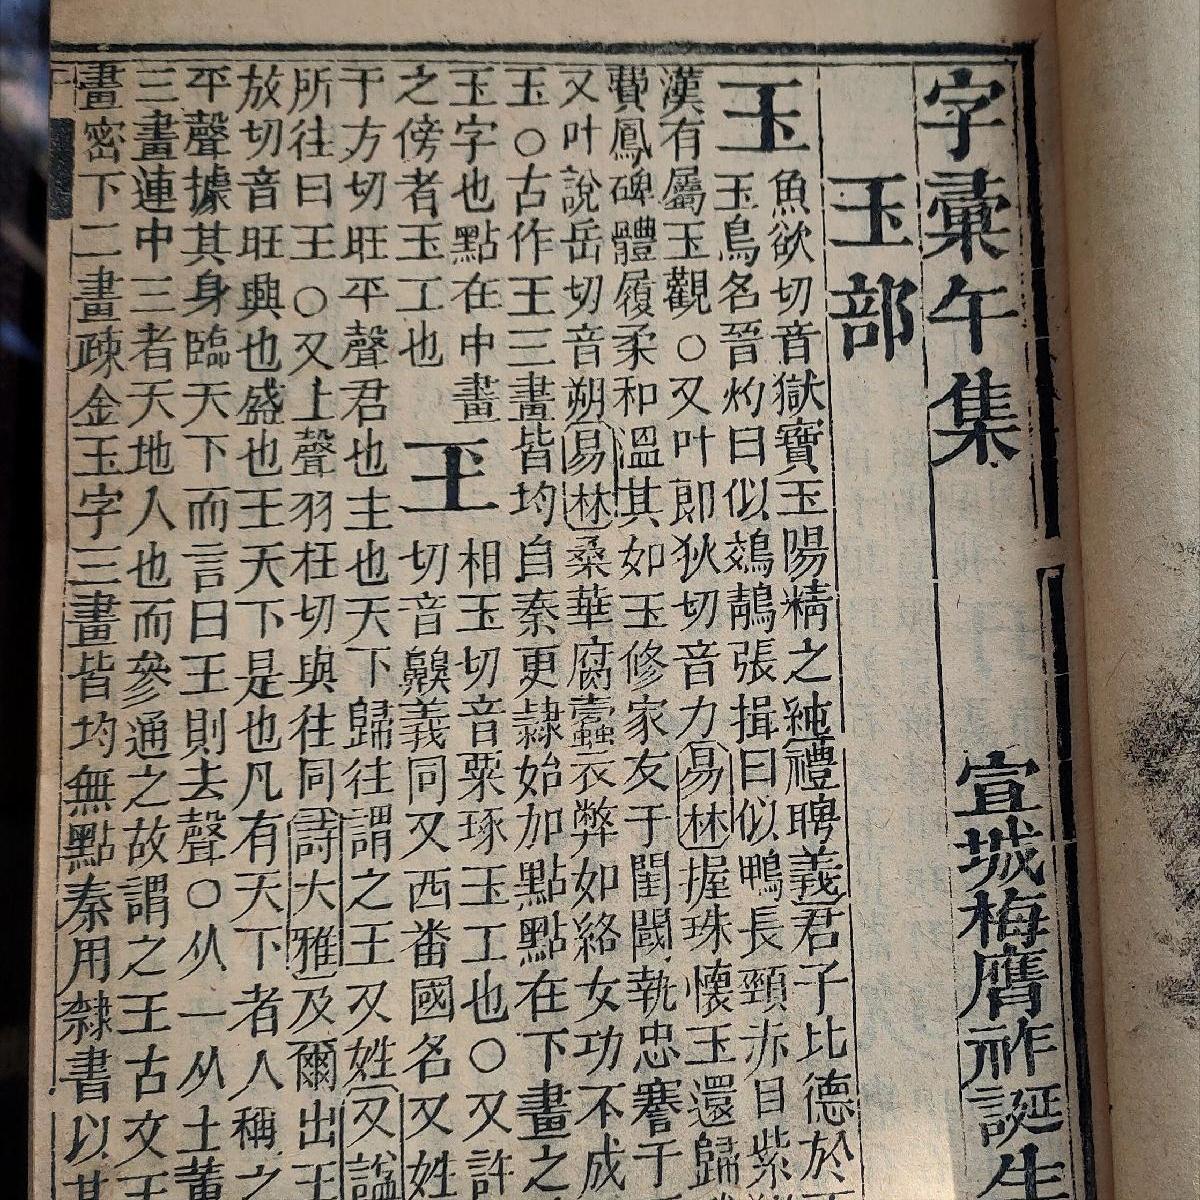 字彙午集
宣城梅膺祚誕生
玉部
玉
魚欲切音獄寶玉陽精之純禮聘義君子比德於
玉鳥名晉灼曰似鵁鶄張揖曰似鴨長頸赤目紫
漢有屬玉觀○又叶即狄切音力易林握珠懷玉還歸
費鳳碑體履柔和溫其如玉修家友于閨閫執忠謇于
又叶說岳切音朔易林桑華腐蠹衣弊如絡女功不成
玉○古作王三畫皆均自秦更隷始加點點在下畫之
玉字也點在中畫
之傍者玉工也
玉
相玉切音粟琢玉工也○又許
切音齅義同又西番國名又姓
于方切旺平聲君也主也天下歸往謂之王又姓又諡
所往曰王○又上聲羽枉切與往同詩大雅及爾出王
放切音旺興也盛也王天下是也凡有天下者人稱之
平聲據其身臨天下而言曰王則去聲○从一从土董
三畫連中三者天地人也而參通之故謂之王古文王
畫密下二畫疎金玉字三畫皆均無點秦用隸書以其